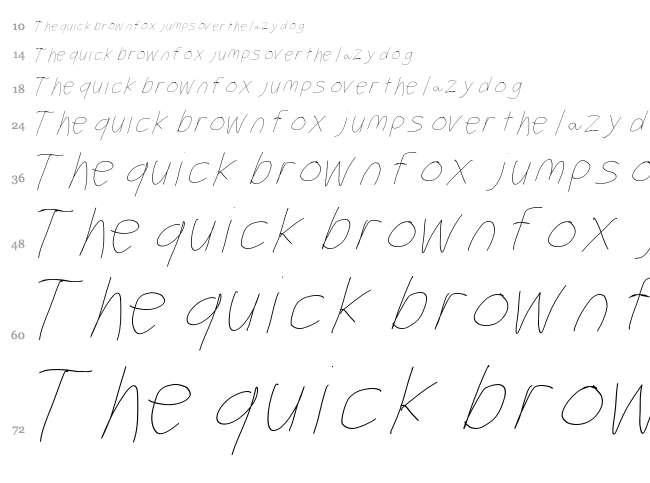 10 The quick brown fox jumps over the lazy dog
14 The quick brown fox jumps over the lazy dog
18 The quick brown fox jumps over the lazy dog
24 The quick brown fox jumps over the lazy d
36 The quick brown fox jumps o
48 The quick brown fox j
60 The quick brown f
72 The quick brow